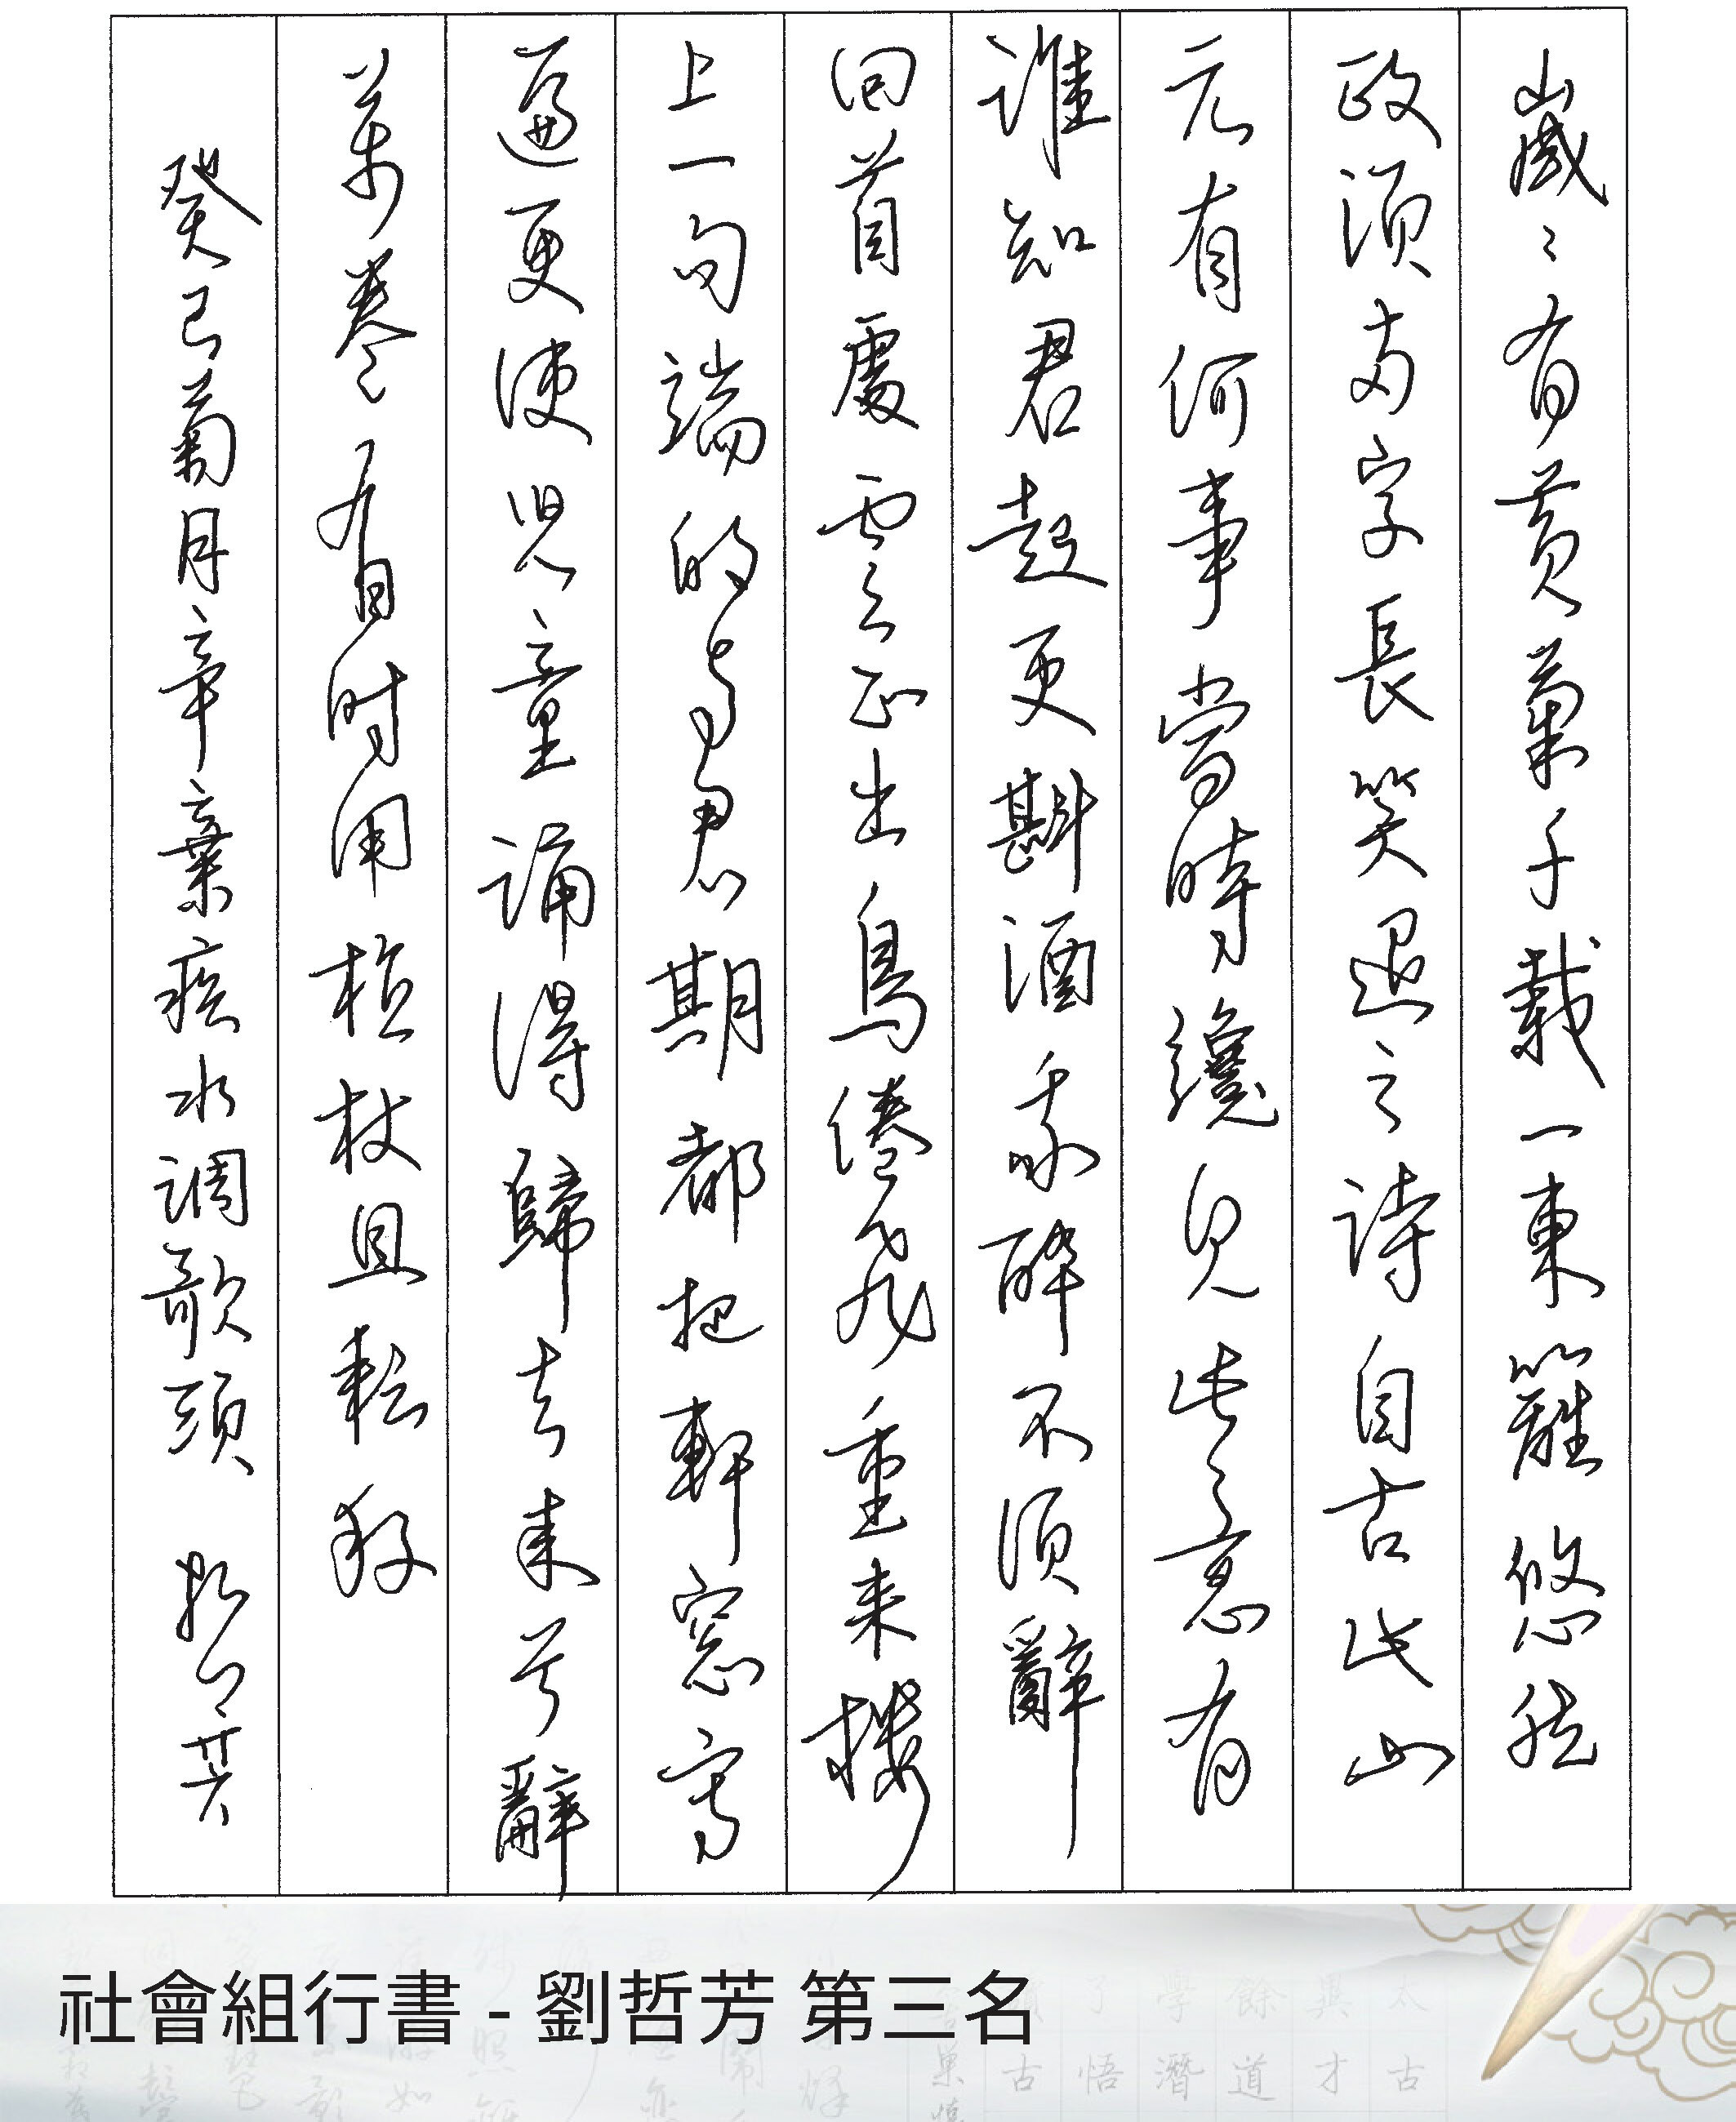 歲々有黃菊千載一東籬悠然
政須兩字長笑退之詩自古此山
元有何事當時纔見此意有
誰知君起更斟酒我醉不須辭
回首處雲正出鳥倦飛重來樓
上一句端的與君期都把軒窓寫
遍更使兒童誦得歸去來兮辭
萬卷有時用植杖且耘籽
癸巳菊月辛棄疾水調歌頭 哲芳
社會組行書 - 劉哲芳 第三名